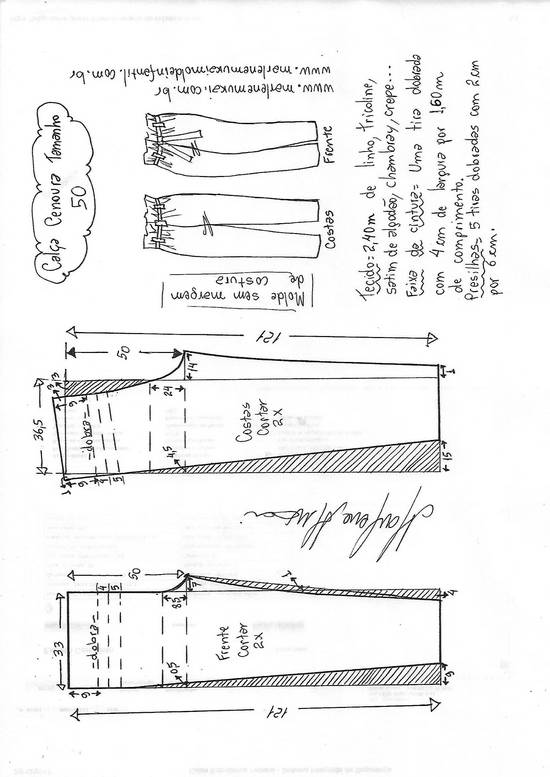 Calça Cenoura Tamanho
50
www.marlenemukai.com.br
www.marlenemukaimoldeinfantil.com.br
Frente
Costas
Molde sem margem
de costura
Tecido= 2,40m de linho, tricoline,
satim de algodão, chambray, crepe...
Faixa de cintura= Uma tira dobrada
com 4 cm de largura por 1,60m
de comprimento.
Presilhas= 5 tiras dobradas com 2cm
121
50
36,5
3
3
14
24
1
-dobra-
Costas
Cortar
2x
4,5
15
50
33
7
8,5
1
4
4
5
-dobra-
Frente
Cortar
2x
0,5
9
121